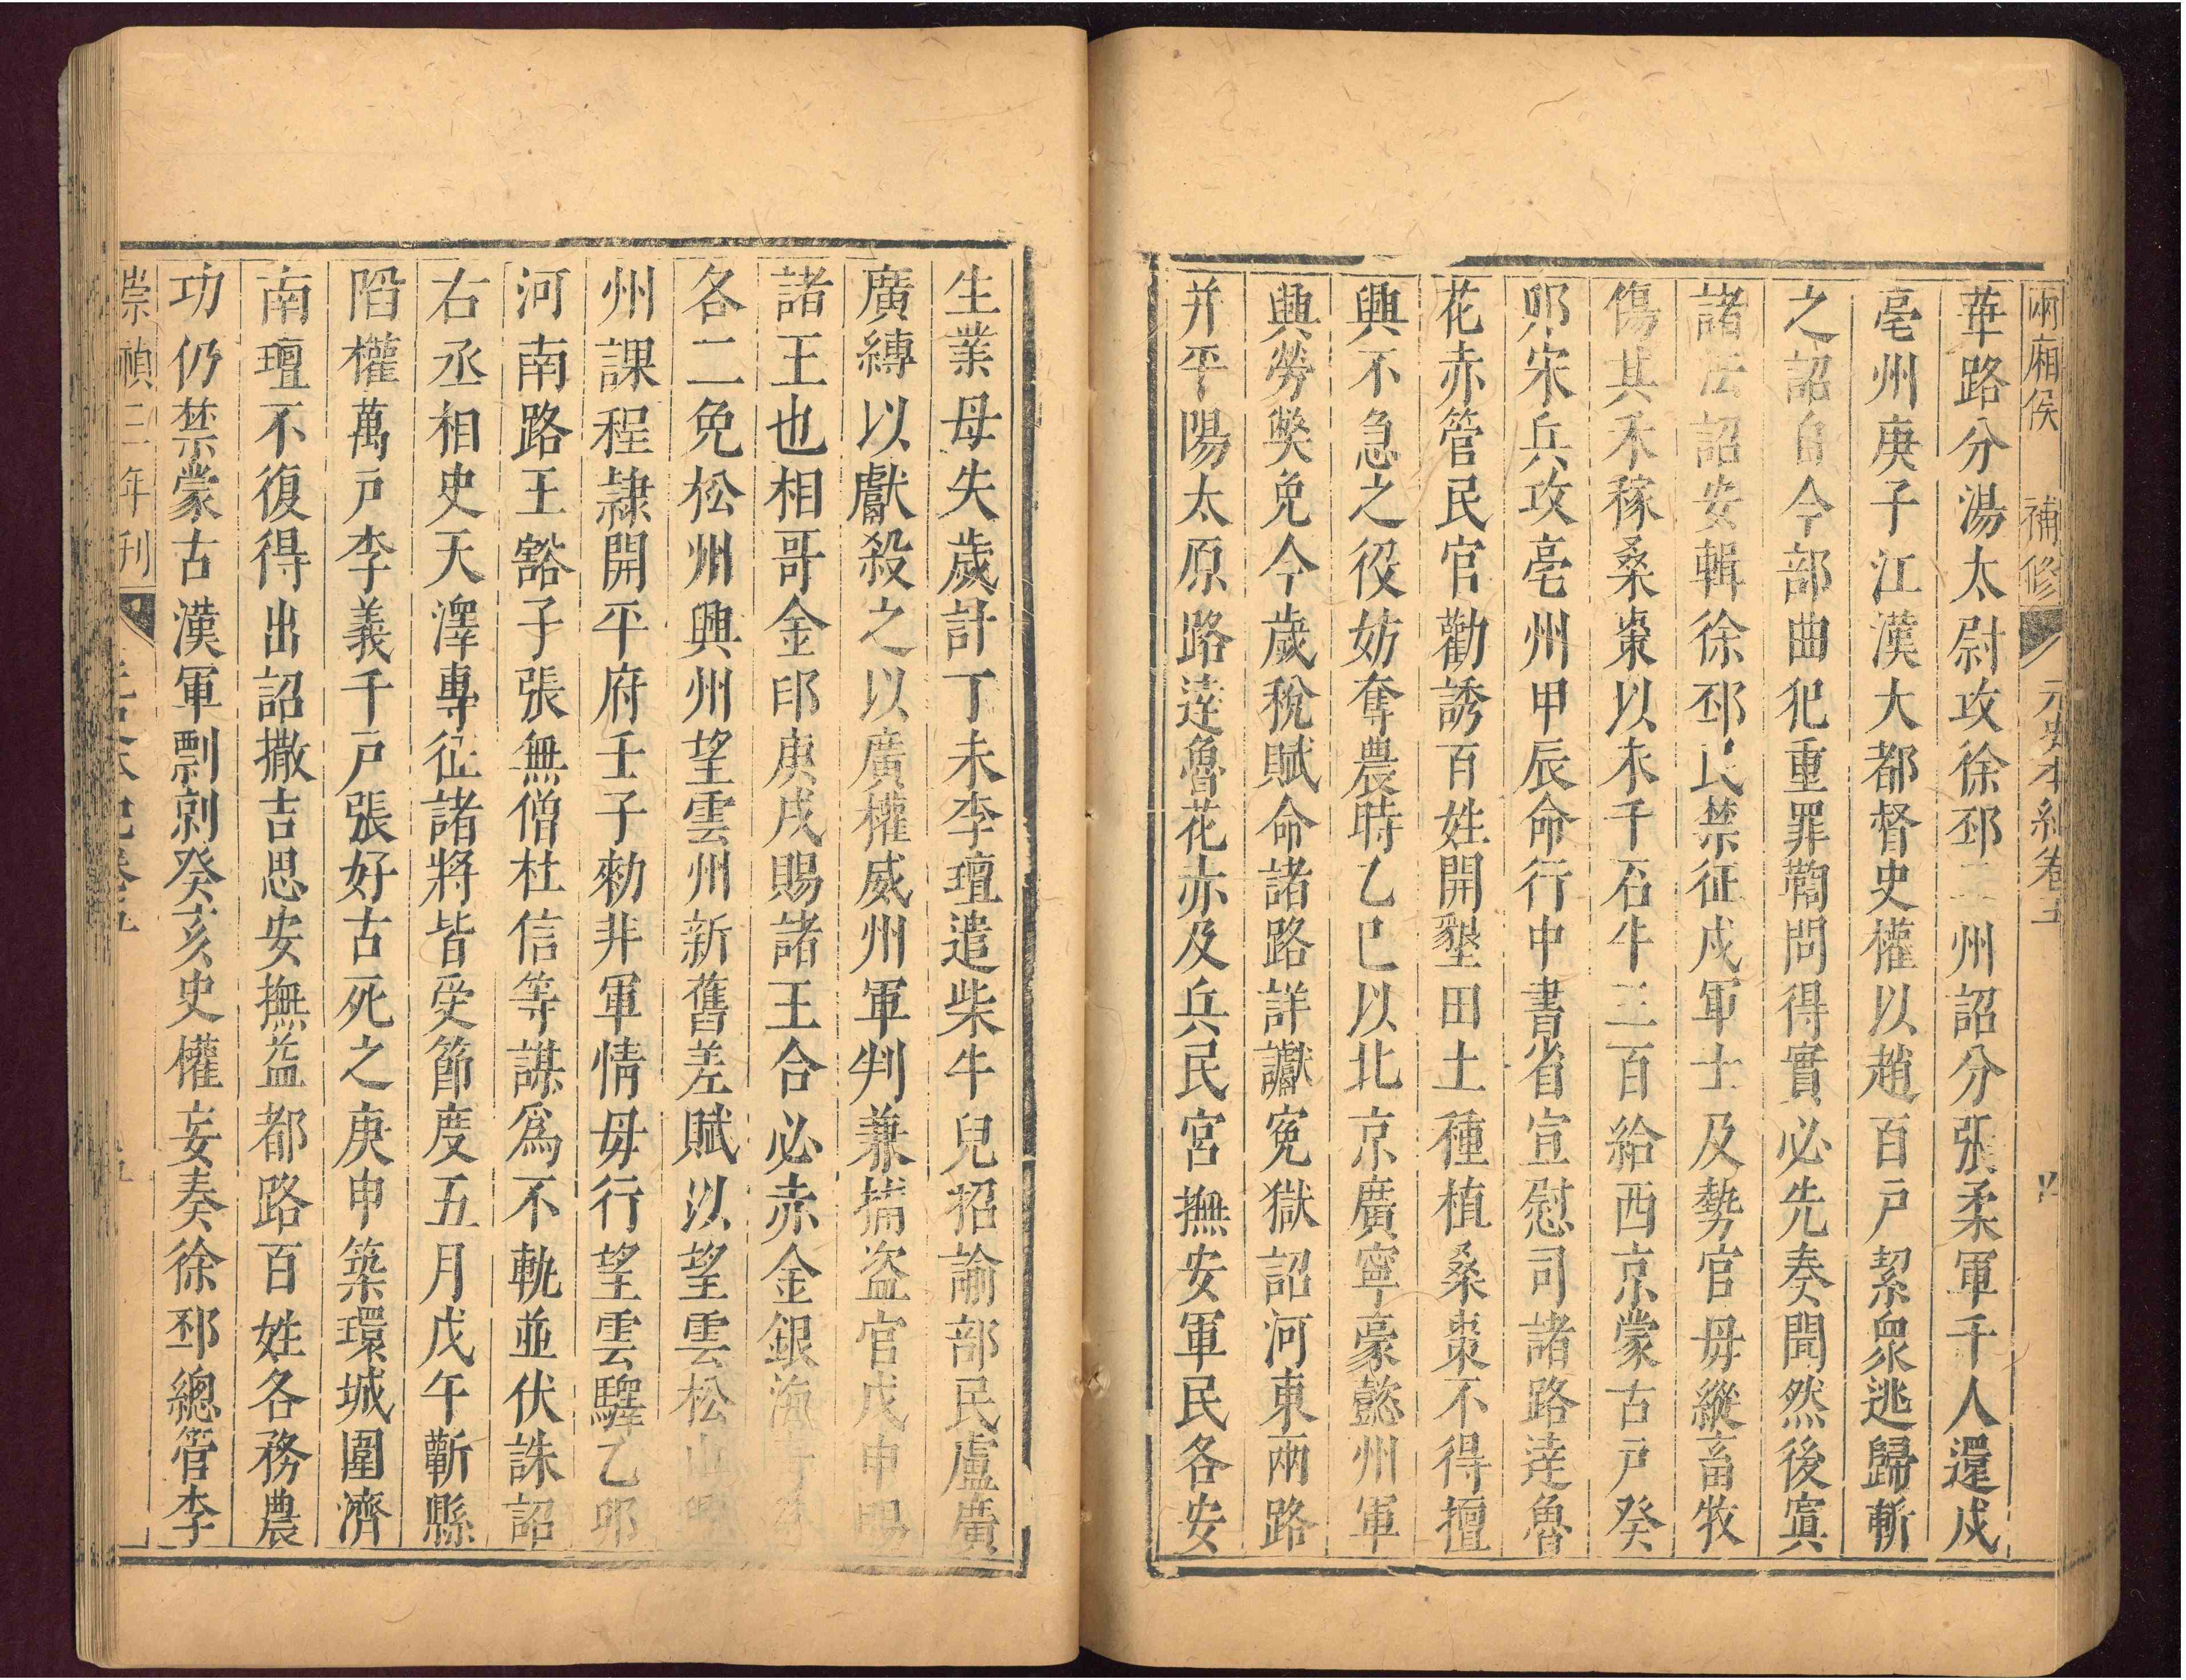 兩廂俟　補修　元史本紀卷五　四
華路分湯太尉攻徐邳二州詔分張柔軍千人還戍
亳州庚子江漢大都督史權以趙百戶絜衆逃歸斬
之詔自今部曲犯重罪鞫問得實必先奏聞然後寘
諸法詔安輯徐邳民禁征戍軍士及勢官毋縱畜牧
傷其禾稼桑棗以米千石牛三百給西京蒙古戶癸
夘宋兵攻亳州甲辰命行中書省宣慰司諸路達魯
花赤管民官勸誘百姓開墾田土種植桑棗不得擅
興不急之役妨奪農時乙巳以北京廣寧豪懿州軍
興勞獘免今歲稅賦命諸路詳讞寃獄詔河東兩路
并平陽太原路達魯花赤及兵民宮撫安軍民各安
生業毋失歲計丁未李璮遣柴牛兒招諭部民盧廣
廣縳以獻殺之以廣權威州軍判兼捕盗官戊申賜
諸王也相哥金印庚戌賜諸王合必赤金銀海青
各二免松州興州望雲州新舊差賦以望雲松山
州課程隷開平府壬子勑非軍情毋行望雲驛乙夘
河南路王豁子張無僧杜信等謀爲不軌並伏誅詔
右丞相史天澤專征諸將皆受節度五月戊午蘄縣
陷權萬戶李義千戶張好古死之庚申築環城圍濟
南璮不復得出詔撒吉思安撫益都路百姓各務農
功仍禁蒙古漢軍剽剠癸亥史權妄奏徐邳總管李
崇禎三年刊　元史本紀卷五　五